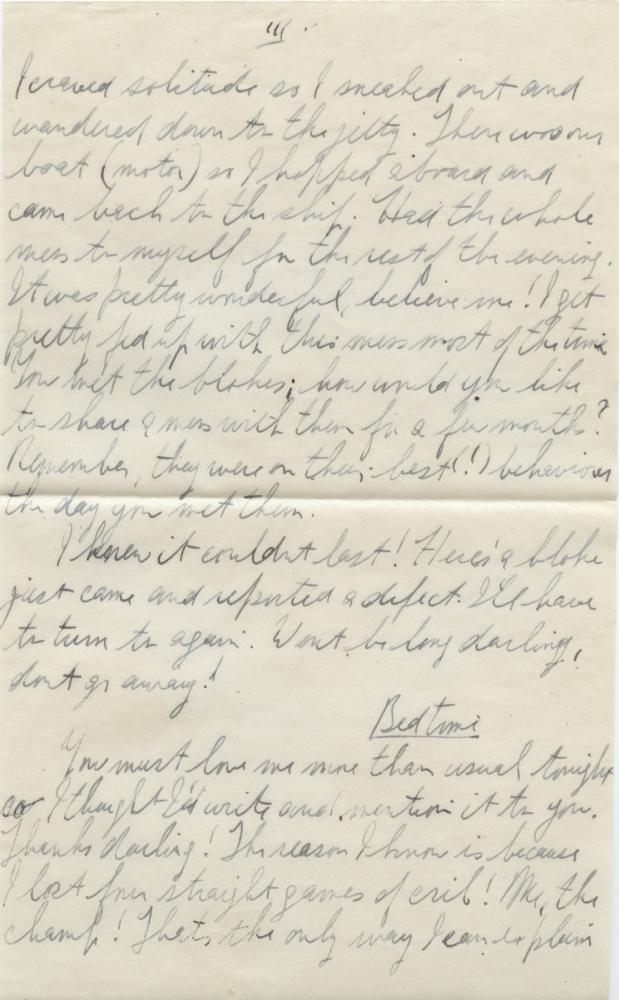 III.
I craved solitude so I sneaked out and
wandered down to the jetty. There was our
boat (motor) so I hopped aboard and
came back to the ship. Had the whole
mess to myself for the rest of the evening.
It was pretty wonderful, believe me! I get
pretty fed up with this mess most of the time
You met the blokes; how would you like
to share a mess with them for a few months?
Remember, they were on their best (!) behaviour
the day you met them.
I knew it couldnt last! Here's a bloke
just came and reported a defect. I'll have
to turn to again. Wont be long darling,
dont go away!
Bedtime
You must love me more than usual tonight
so I thought I'd write and mention it to you.
Thanks darling! The reason I know is because
I lost four straight games of crib! Me, the
champ! Thats the only way I can explain